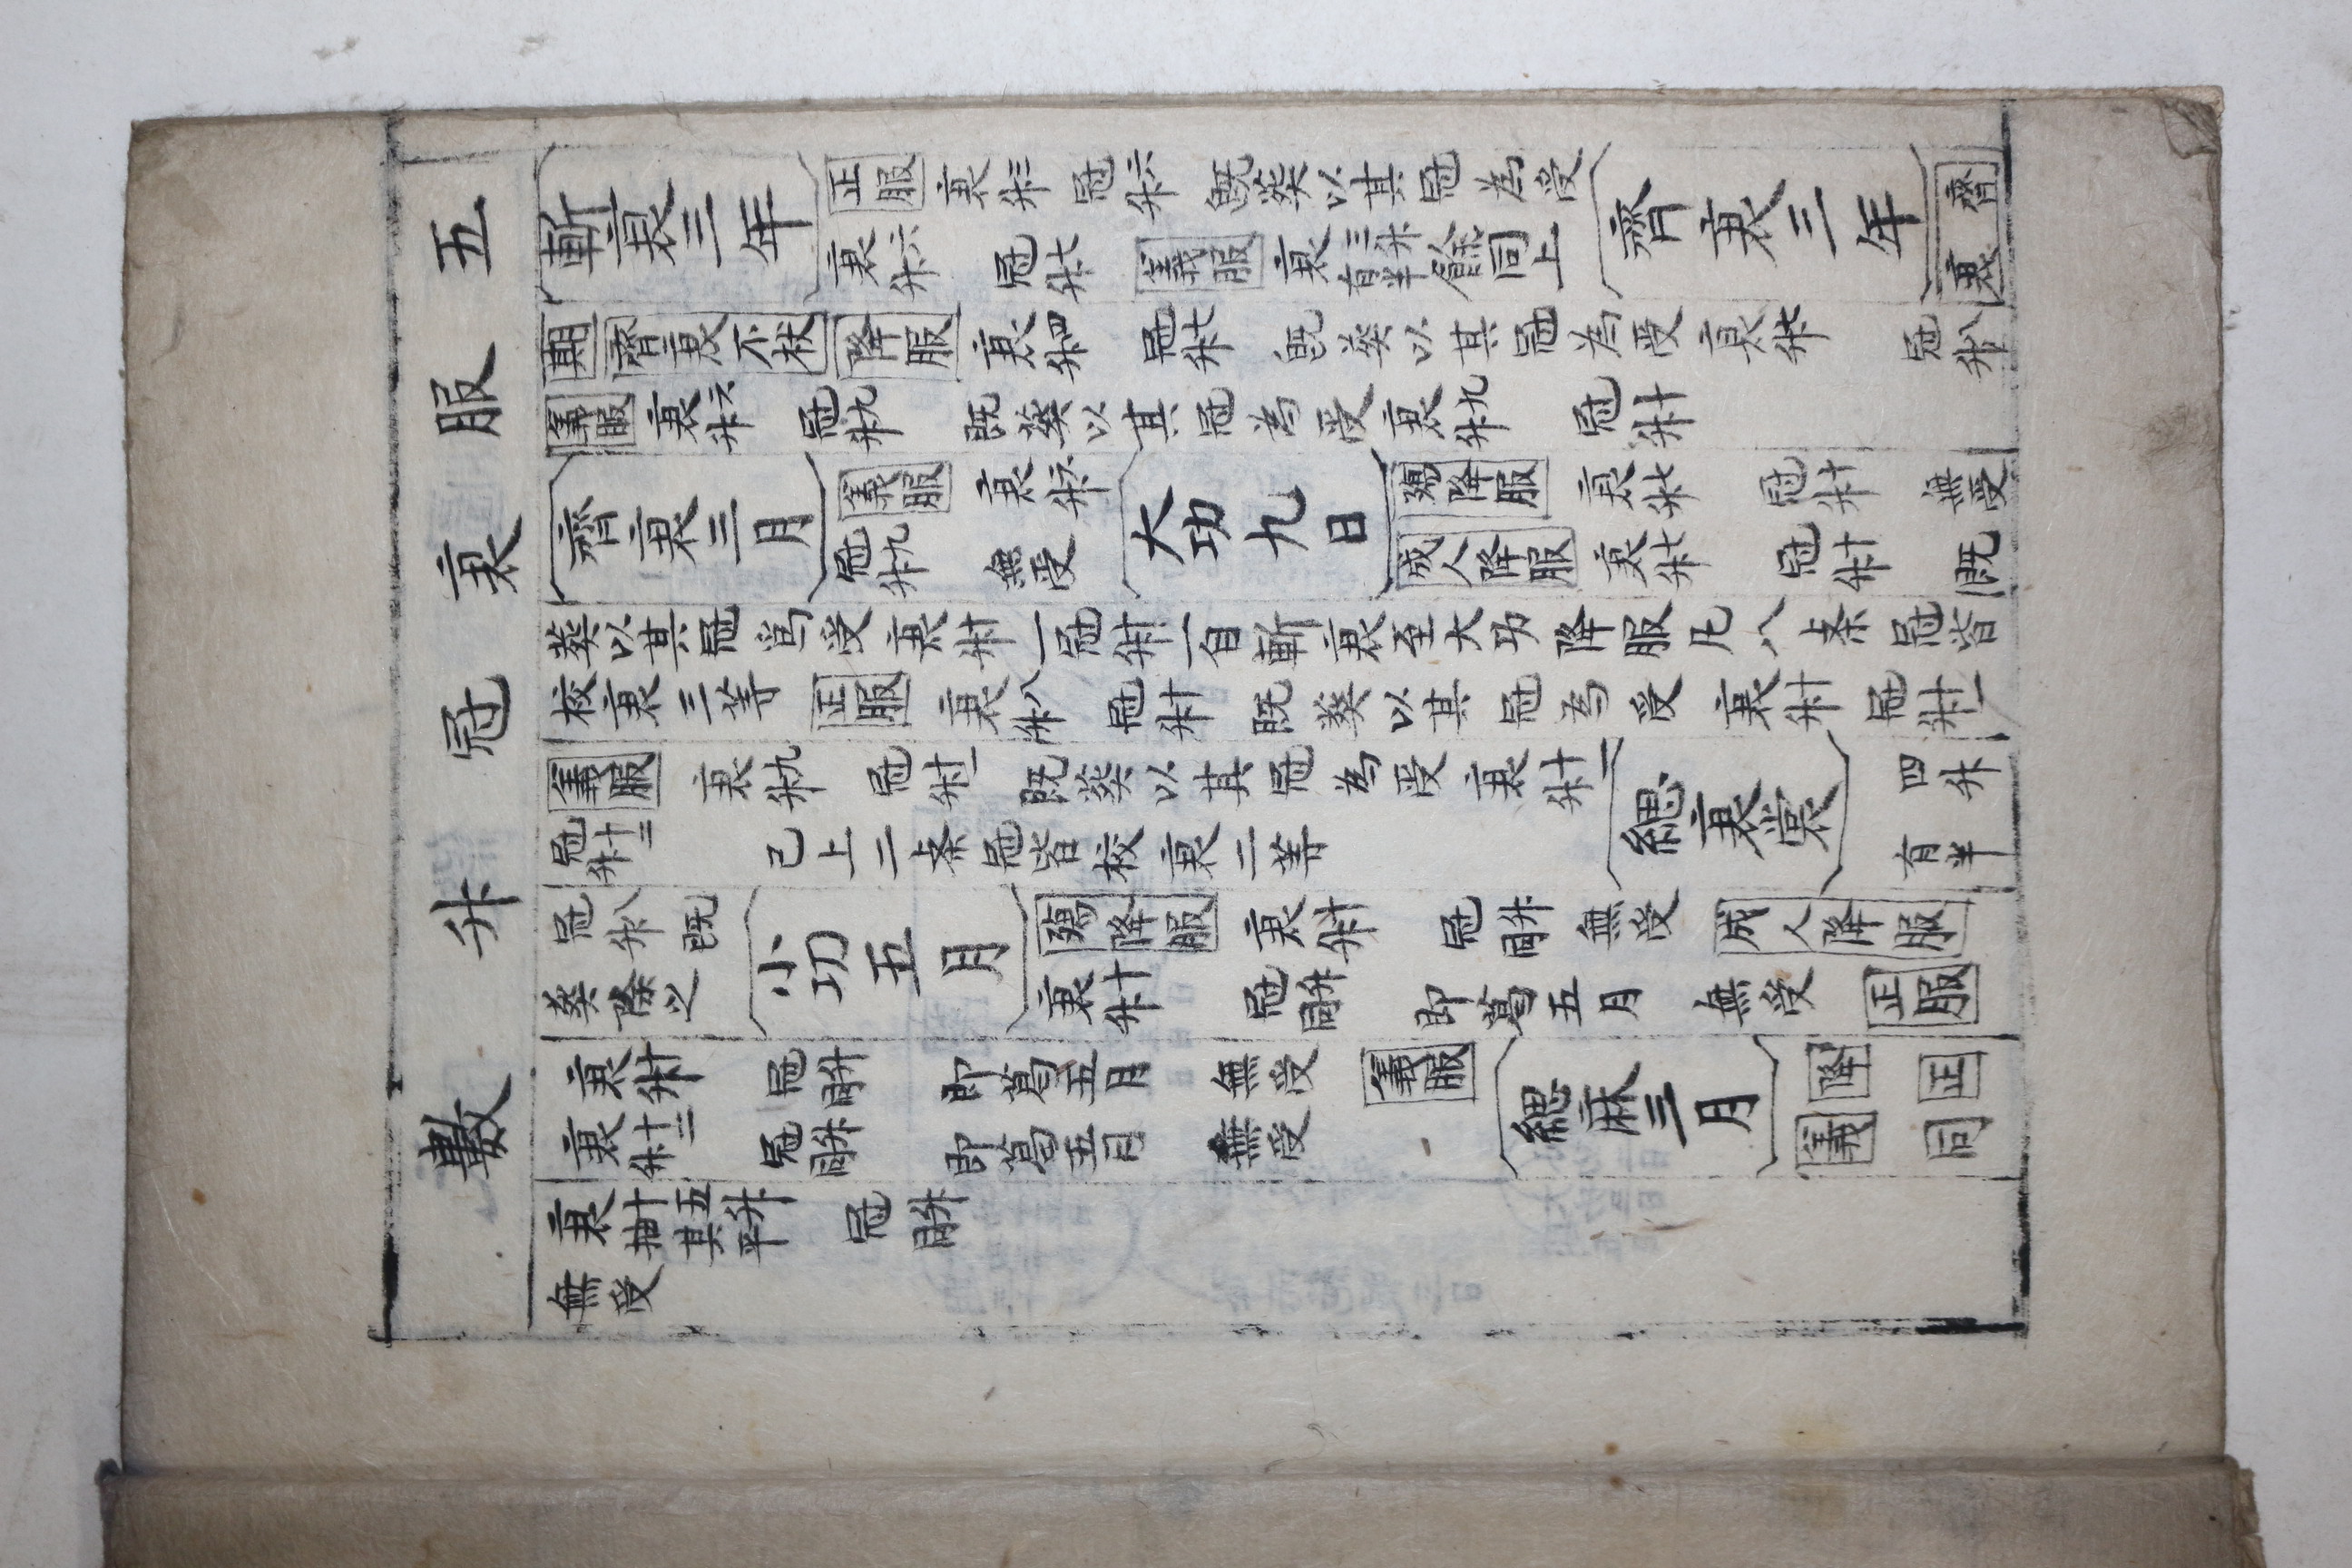 五服衰冠升數
斬衰三年
正服 衰三升 冠六升 既葬以其冠為受
衰六升 冠七升 義服 衰三升有半餘同上
齊衰三年
齊
衰
期 齊衰不杖 降服 衰四升 冠七升 既葬以其冠為受衰七升 冠八升
義服 衰六升 冠九升 既葬以其冠為受衰九升 冠十升
齊衰三月
義服 衰六升
冠九升 無受
大功九日
殤降服 衰七升 冠十升 無受
成人降服 衰七升 冠十升 既
葬以其冠為受衰十升一冠十升一自斬衰至大功降服凡八条冠皆
校衰三等 正服 衰八升 冠十升 既葬以其冠為受 衰十升 冠十一升
義服 衰九升 冠十一升 既葬以其冠為受衰十一升
冠十二升 已上二条冠皆校衰二等
繐衰裳
四升
有半
冠八升既
葬除之
小功五月
殤降服 衰十升 冠同升 無受 成人降服
衰十升 冠同升 即葛五月 無受 正服
衰十升 冠同升 即葛五月 無受 義服
衰十二升 冠同升 即葛五月 無受
緦麻三月
降 正
義 同
衰十五升抽其半 冠同升
無受